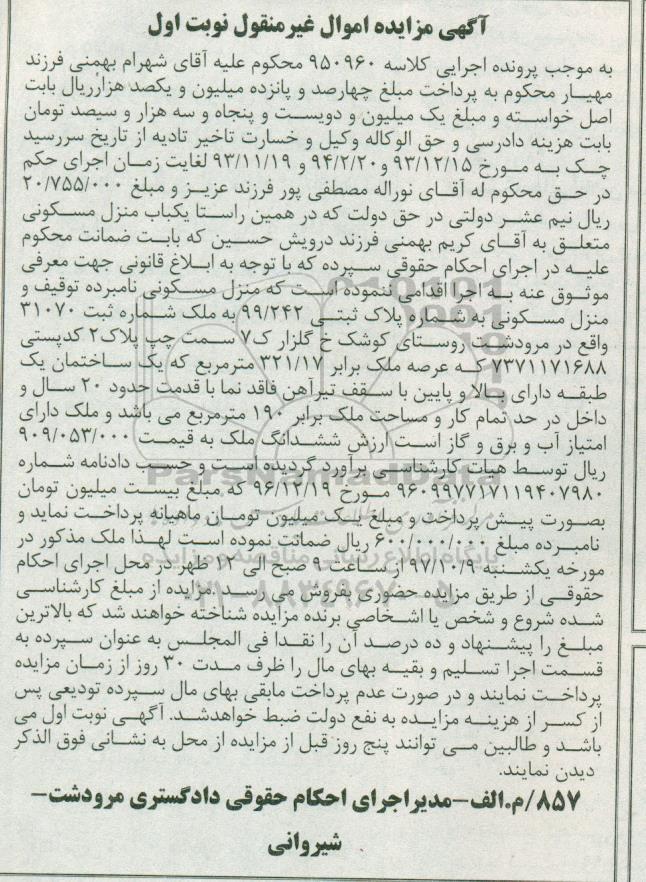 آگهی مزایده اموال غیرمنقول نوبت اول
به موجب پرونده اجرایی کلاسه ۹۵۰۹۶۰ محکوم علیه آقای شهرام بهمنی فرزند
مهیار محکوم به پرداخت مبلغ چهارصد و پانزده میلیون و یکصد هزارریال بابت
اصل خواسته و مبلغ یک میلیون و دویست و پنجاه و سه هزار و سیصد تومان
بابت هزینه دادرسی و حق الوکاله وکیل و خسارت تاخیر تادیه از تاریخ سررسید
چک به مورخ ۹۳/۱۲/۱۵ و ۹۴/۲/۲۰ و ۹۳/۱۱/۱۹ لغایت زمان اجرای حکم
در حق محکوم له آقای نوراله مصطفی پور فرزند عزیز و مبلغ ۲۰/۷۵۵/۰۰۰
ریال نیم عشر دولتی در حق دولت که در همین راستا یکباب منزل مسکونی
متعلق به آقای کریم بهمنی فرزند درویش حسین که بابت ضمانت محکوم
علیه در اجرای احکام حقوقی سپرده که با توجه به ابلاغ قانونی جهت معرفی
موثوق عنه به اجرا اقدامی ننموده است که منزل مسکونی نامبرده توقیف و
منزل مسکونی به شماره پلاک ثبتی ۹۹/۲۴۲ به ملک شماره ثبت ۳۱۰۷۰
واقع در مرودشت روستای کوشک خ گلزار ک۷ سمت چپ پلاک۲ کدپستی
۷۳۷۱۱۷۱۶۸۸ که عرصه ملک برابر ۳۲۱/۱۷ مترمربع که یک ساختمان یک
طبقه دارای بالا و پایین با سقف تیرآهن فاقد نما با قدمت حدود ۲۰ سال و
داخل در حد تمام کار و مساحت ملک برابر ۱۹۰ مترمربع می باشد و ملک دارای
امتیاز آب و برق و گاز است ارزش ششدانگ ملک به قیمت ۹۰۹/۰۵۳/۰۰۰
ریال توسط هیات کارشناسی برآورد گردیده است و حسب دادنامه شماره
۹۶۰۹۹۷۷۱۷۱۱۹۴۰۷۹۸۰ مورخ ۹۶/۱۲/۱۹ که مبلغ بیست میلیون تومان
بصورت پیش پرداخت و مبلغ یک میلیون تومان ماهیانه پرداخت نماید و
نامبرده مبلغ ۶۰۰/۰۰۰/۰۰۰ ریال ضمانت نموده است لهذا ملک مذکور در
مورخه یکشنبه ۹۷/۱۰/۹ از ساعت ۹ صبح الی ۱۲ ظهر در محل اجرای احکام
حقوقی از طریق مزایده حضوری بفروش می رسد. مزایده از مبلغ کارشناسی
شده شروع و شخص یا اشخاصی برنده مزایده شناخته خواهند شد که بالاترین
مبلغ را پیشنهاد و ده درصد آن را نقدا فی المجلس به عنوان سپرده به
قسمت اجرا تسلیم و بقیه بهای مال را ظرف مدت ۳۰ روز از زمان مزایده
پرداخت نمایند و در صورت عدم پرداخت مابقی بهای مال سپرده تودیعی پس
از کسر از هزینه مزایده به نفع دولت ضبط خواهدشد. آگهی نوبت اول می
باشد و طالبین می توانند پنج روز قبل از مزایده از محل به نشانی فوق الذکر
دیدن نمایند.
۸۵۷/م.الف-مدیراجرای احکام حقوقی دادگستری مرودشت-
شیروانی
ParsNamadData
پایگاه اطلاع رسانی مناقصه و مزایده